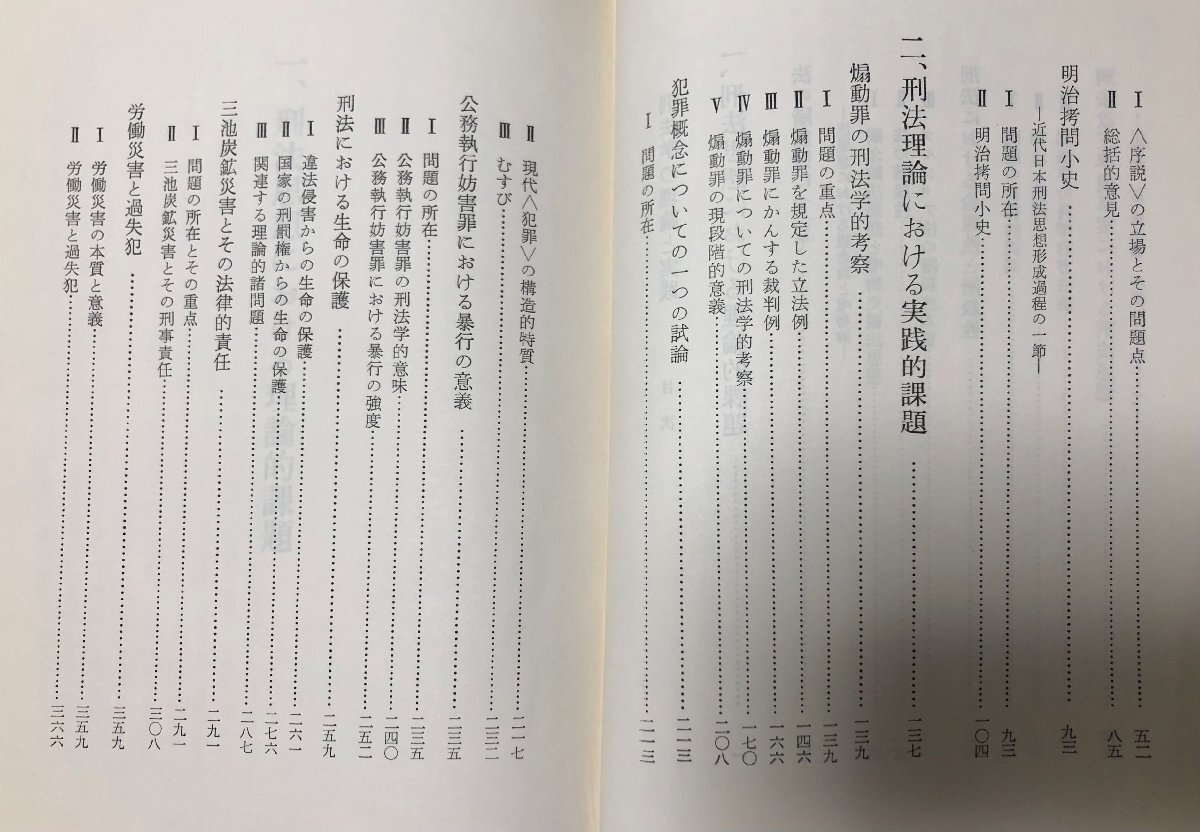 Ⅰ 〈序説〉の立場とその問題点……五二
Ⅱ 総括的意見……八五
明治拷問小史……九三
―近代日本刑法思想形成過程の一節―
Ⅰ 問題の所在……九三
Ⅱ 明治拷問小史……一〇四
二、刑法理論における実践的課題……一三七
煽動罪の刑法学的考察……一三九
Ⅰ 問題の重点……一三九
Ⅱ 煽動罪を規定した立法例……一四六
Ⅲ 煽動罪にかんする裁判例……一六六
Ⅳ 煽動罪についての刑法学的考察……一七〇
Ⅴ 煽動罪の現段階的意義……二〇八
犯罪概念についての一つの試論……二一三
Ⅰ 問題の所在……二一三
Ⅱ 現代〈犯罪〉の構造的特質……二一七
Ⅲ むすび……二三二
公務執行妨害罪における暴行の意義……二三五
Ⅰ 問題の所在……二三五
Ⅱ 公務執行妨害罪の刑法学的意味……二四〇
Ⅲ 公務執行妨害罪における暴行の強度……二五二
刑法における生命の保護……二五九
Ⅰ 違法侵害からの生命の保護……二六一
Ⅱ 国家の刑罰権からの生命の保護……二七六
Ⅲ 関連する理論的諸問題……二八七
三池炭鉱災害とその法律的責任……二九一
Ⅰ 問題の所在とその重点……二九一
Ⅱ 三池炭鉱災害とその刑事責任……三〇八
労働災害と過失犯……三五九
Ⅰ 労働災害の本質と意義……三五九
Ⅱ 労働災害と過失犯……三六六